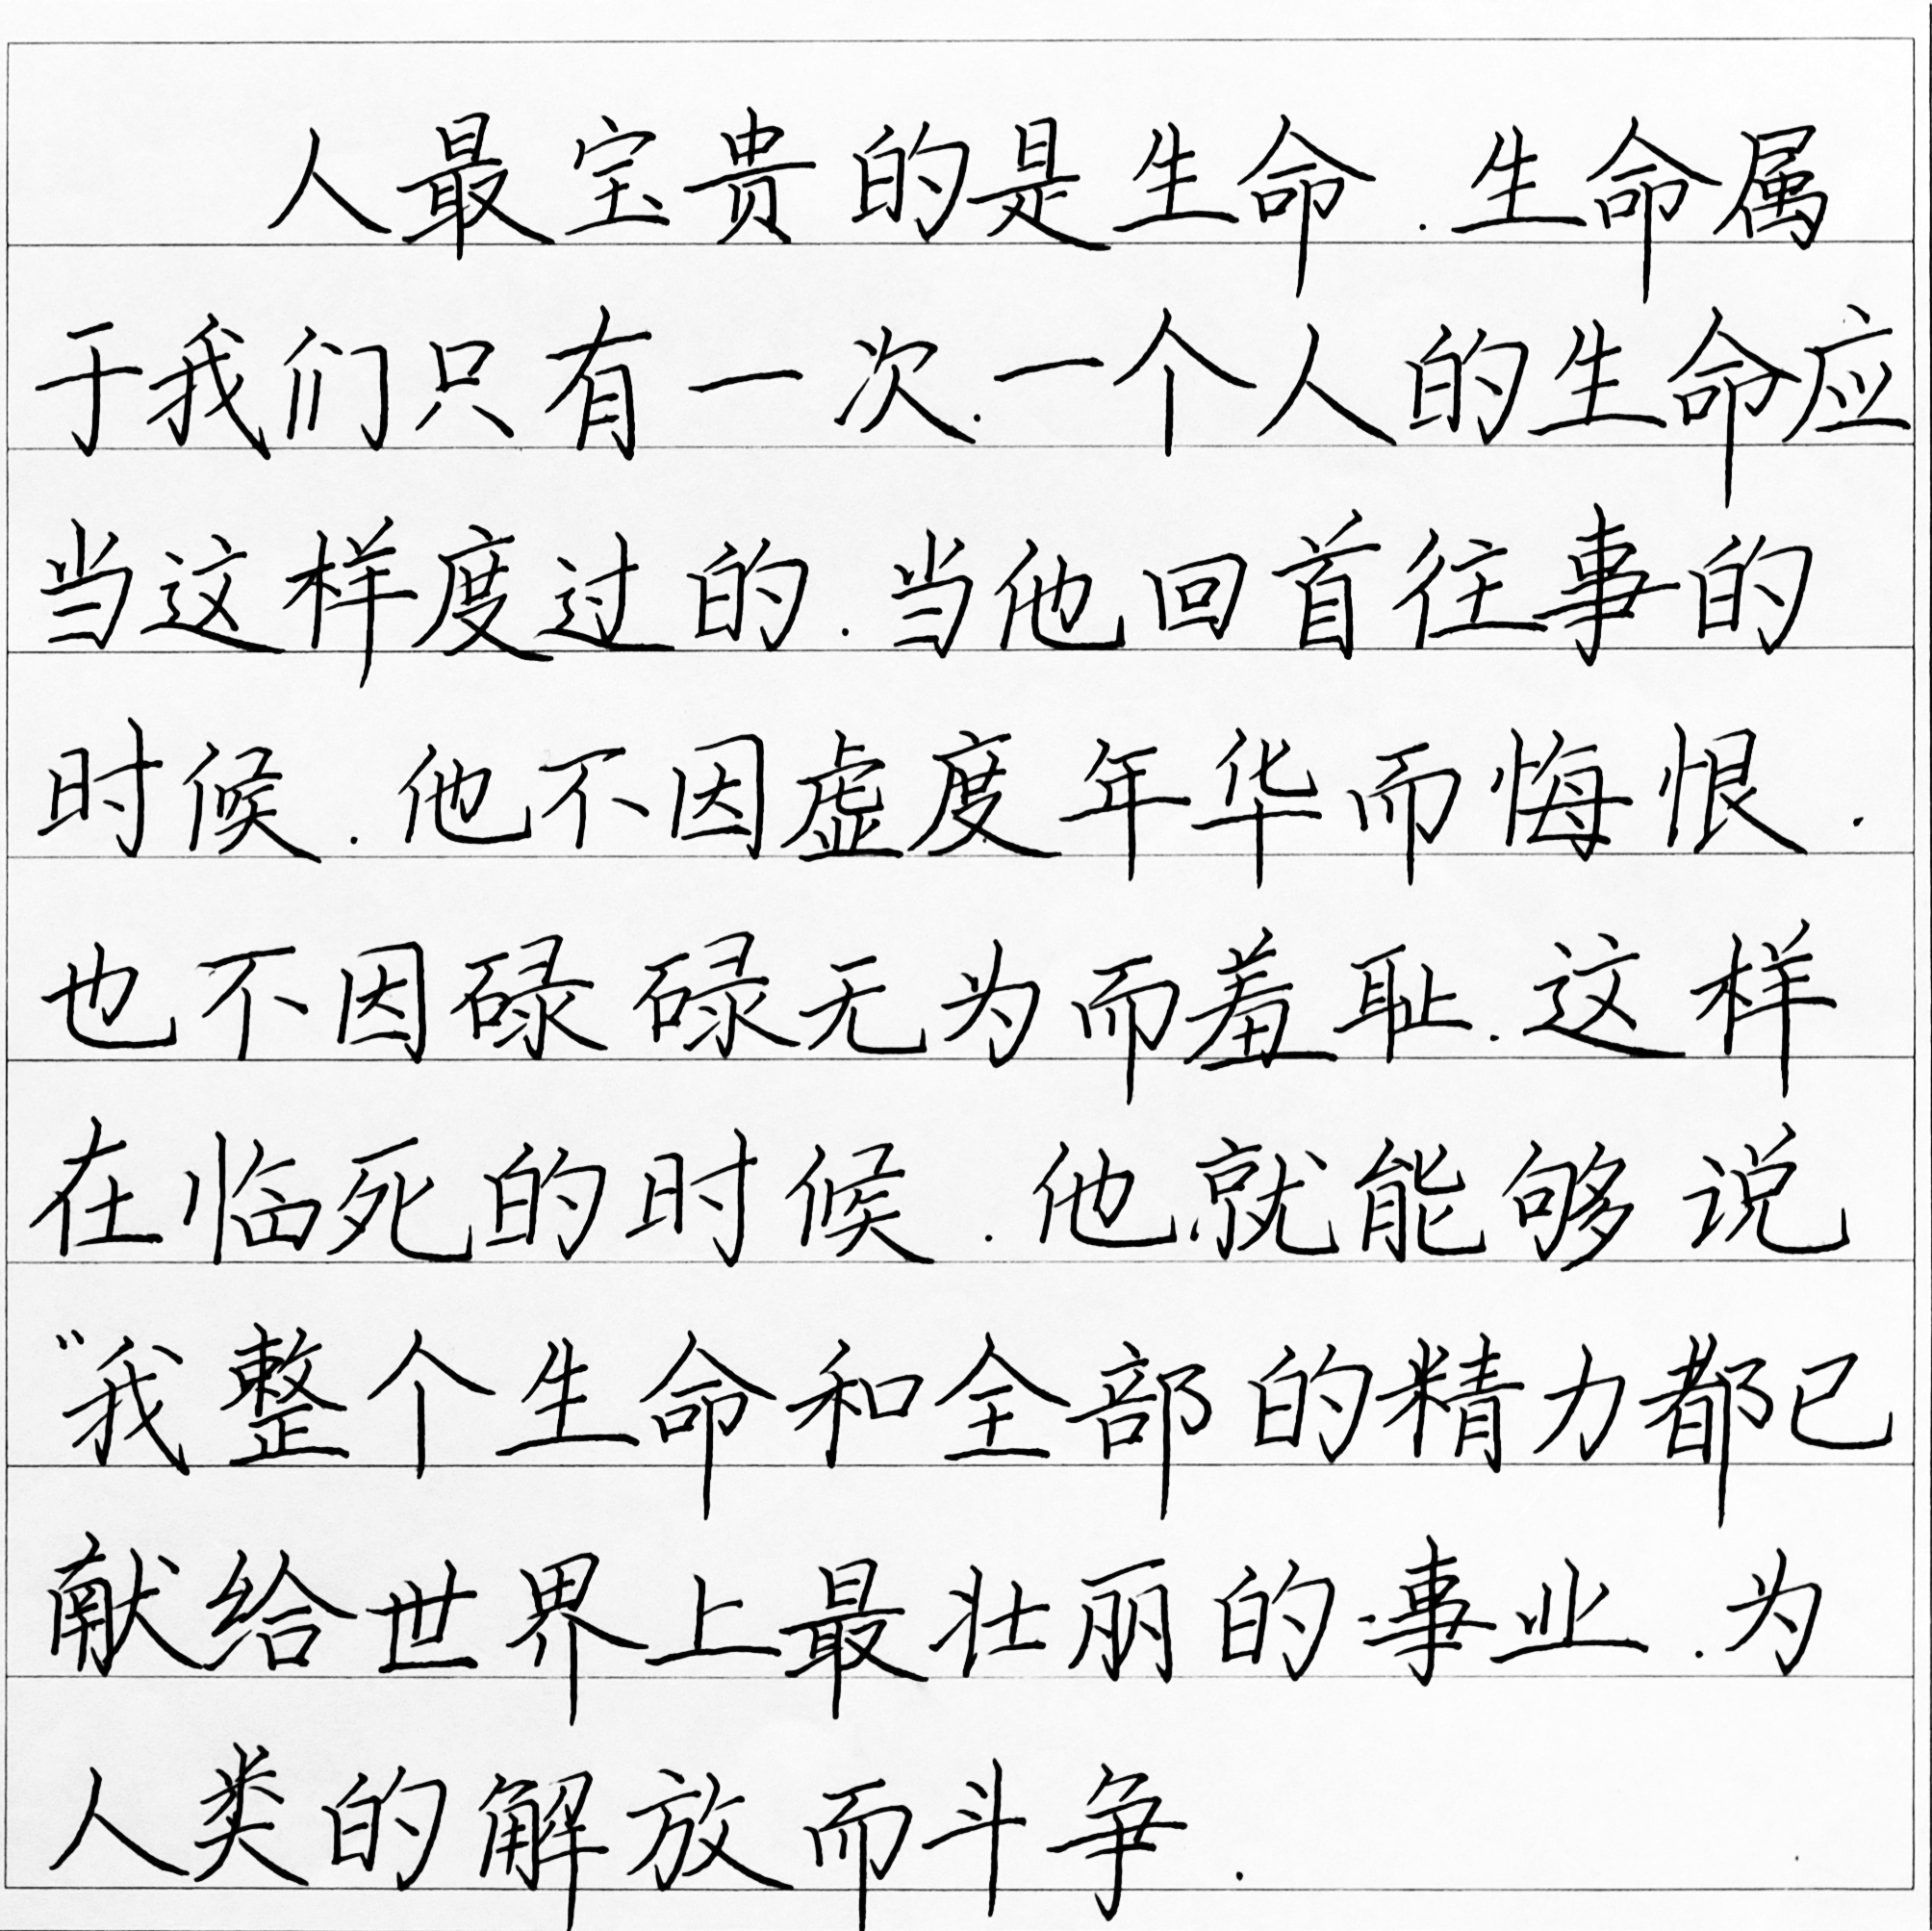 人最宝贵的是生命.生命属
于我们只有一次.一个人的生命应
当这样度过的.当他回首往事的
时候.他不因虚度年华而悔恨.
也不因碌碌无为而羞耻.这样
在临死的时候.他就能够说
"我整个生命和全部的精力都已
献给世界上最壮丽的事业.为
人类的解放而斗争.